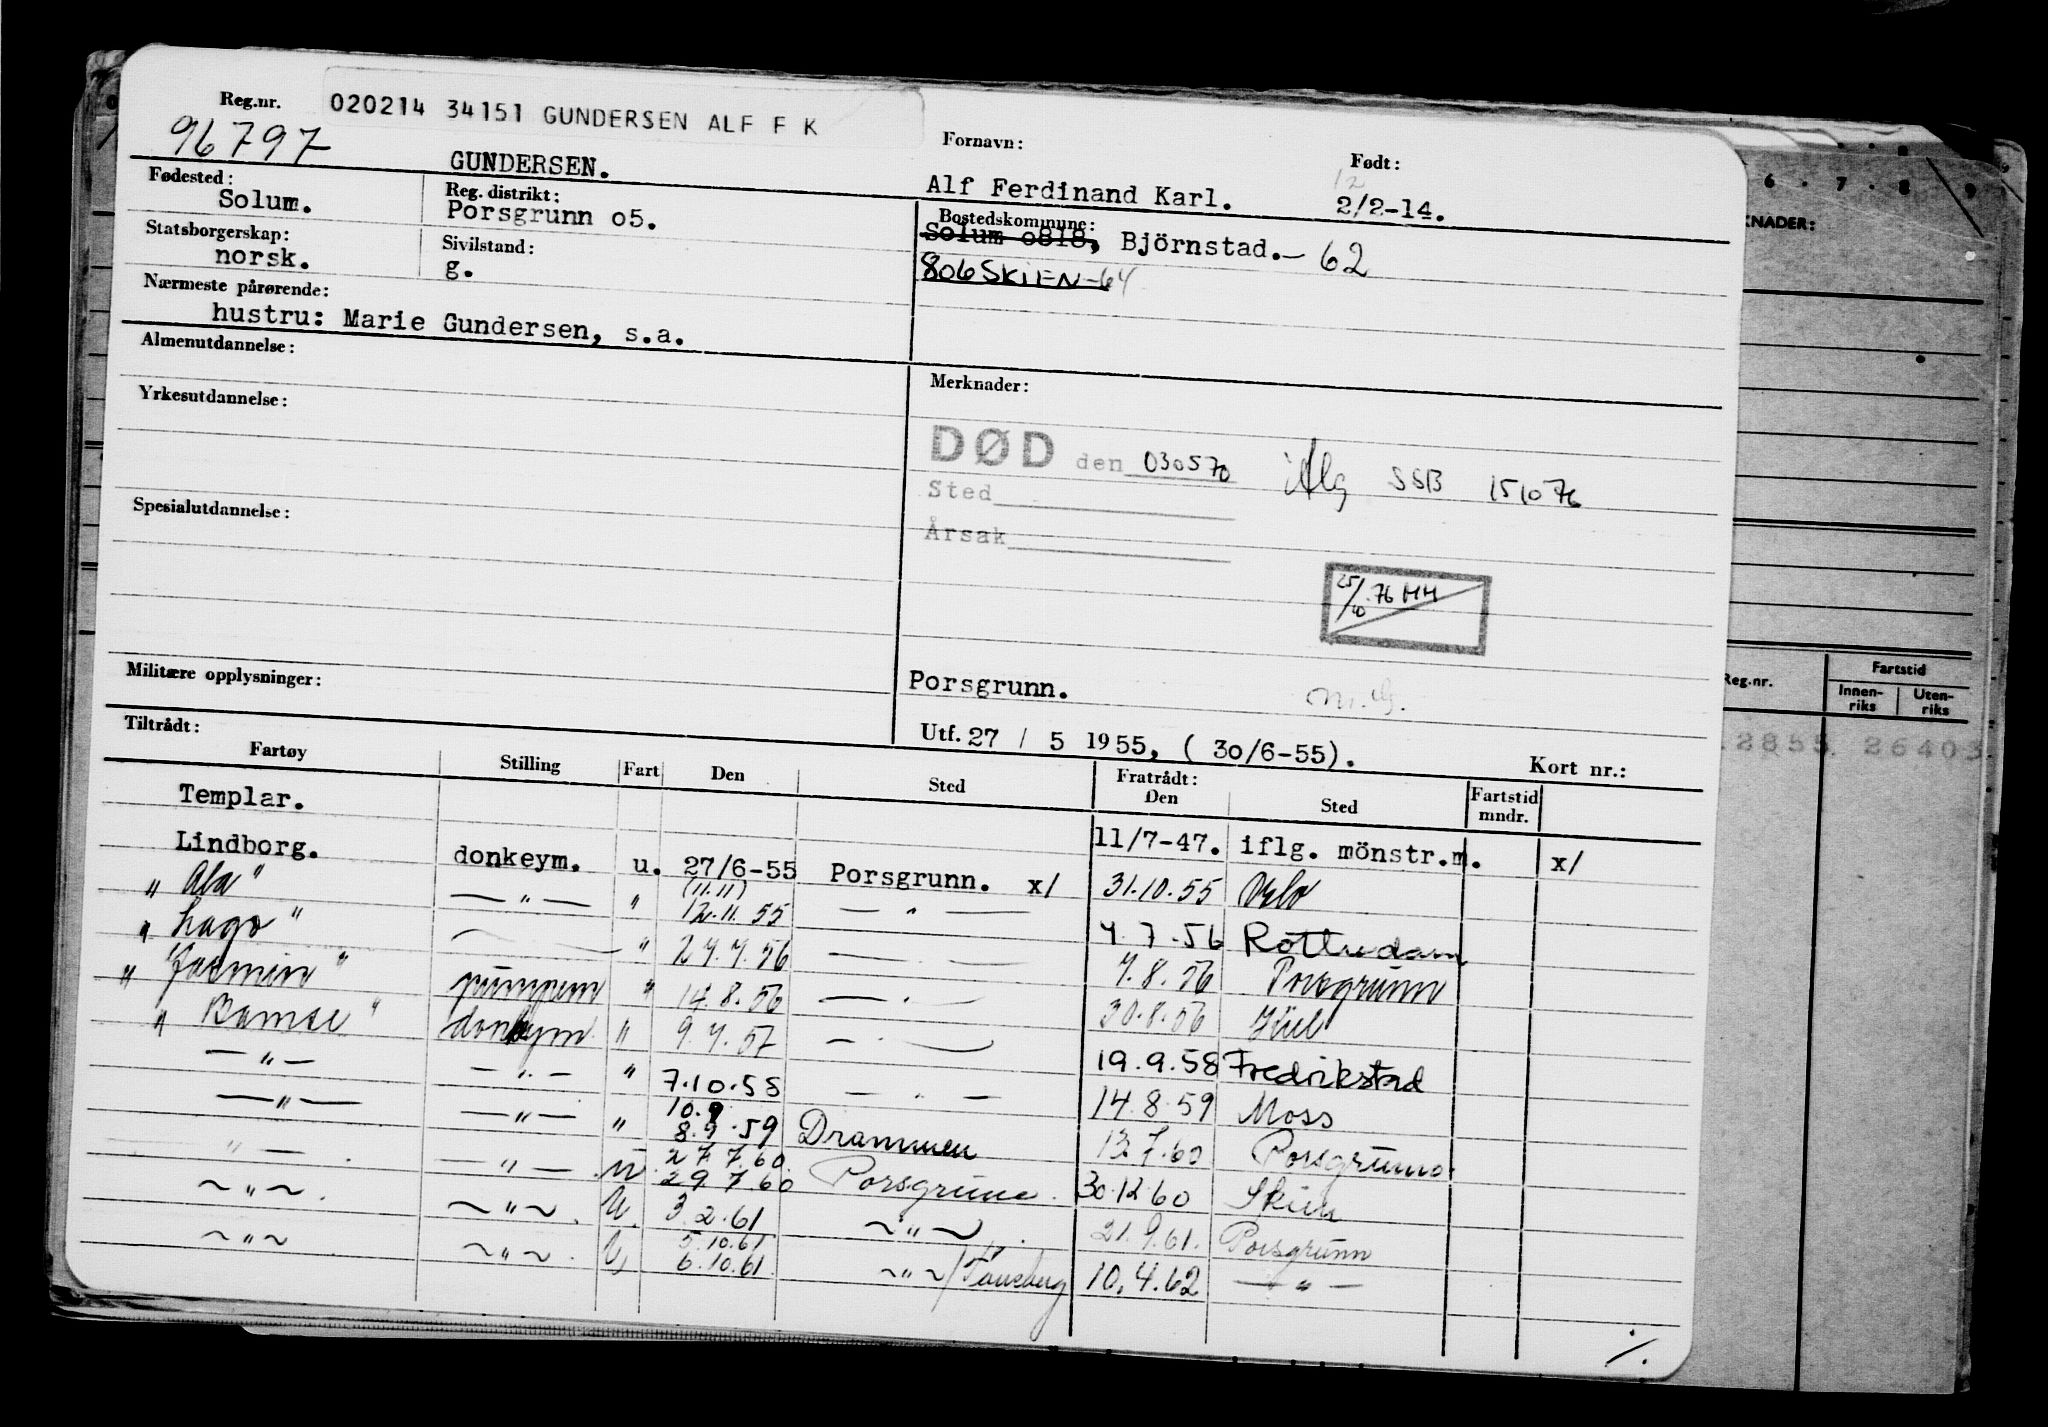 Reg.nr.
020214 34151 GUNDERSEN ALF F K
96797
GUNDERSEN.
Fornavn:
Alf Ferdinand Karl.
Født:
12
2/2-14.
Fødested:
Solum.
Reg. distrikt:
Porsgrunn o5.
Bostedskommune:
Solum o818, Björnstad.- 62
806 SKIEN-64
Statsborgerskap:
norsk.
Sivilstand:
g.
Nærmeste pårørende:
hustru: Marie Gundersen, s.a.
Almenutdannelse:
Yrkesutdannelse:
Spesialutdannelse:
Militære opplysninger:
Merknader:
DØD den 030570 iflg SSB 151076
Sted
Årsak
25/10 76 HH
Porsgrunn.
Utf. 27 / 5 1955, ( 30/6-55).
Kort nr.:
Tiltrådt:
Fartøy Stilling Fart Den Sted Fratrådt: Den Sted Fartstid mndr.
Templar. 11/7-47. iflg. mönstr.m. x/
Lindborg. donkeym. u. 27/6-55 Porsgrunn. x/ 31.10.55 Oslo
" Ala" — " — " (11.11) 12.11.55 — " — 4.7.56 Rotterdam
" Lago " " 24.7.56 7.8.56 Porsgrunn
" Jasmin " pumpem " 14.8.56 — " — 30.8.56 Kiel
" Bamse " donkym. " 9.7.57 — " — 19.9.58 Fredrikstad
— " — — " — " 7.10.58 — " — 14.8.59 Moss
— " — — " — " 10.9 8.9.59 Drammen 13.7.60 Porsgrunn
" — — " — u. 27.7.60. 29.7.60 Porsgrunn. 30.12.60 Skien
~ " ~ . ~ " ~ . U. 3.2.61 ~ " ~ . 21.9.61. Porsgrunn
~ " ~ ~ " ~ . U, 5.10.61 6.10.61. ~ " ~ / Tønsberg 10.4.62 — " —
%.
6 . 7 . 8 9
KNADER:
Reg.nr.
Fartstid
Innen-riks
Uten-riks
2855. 26403